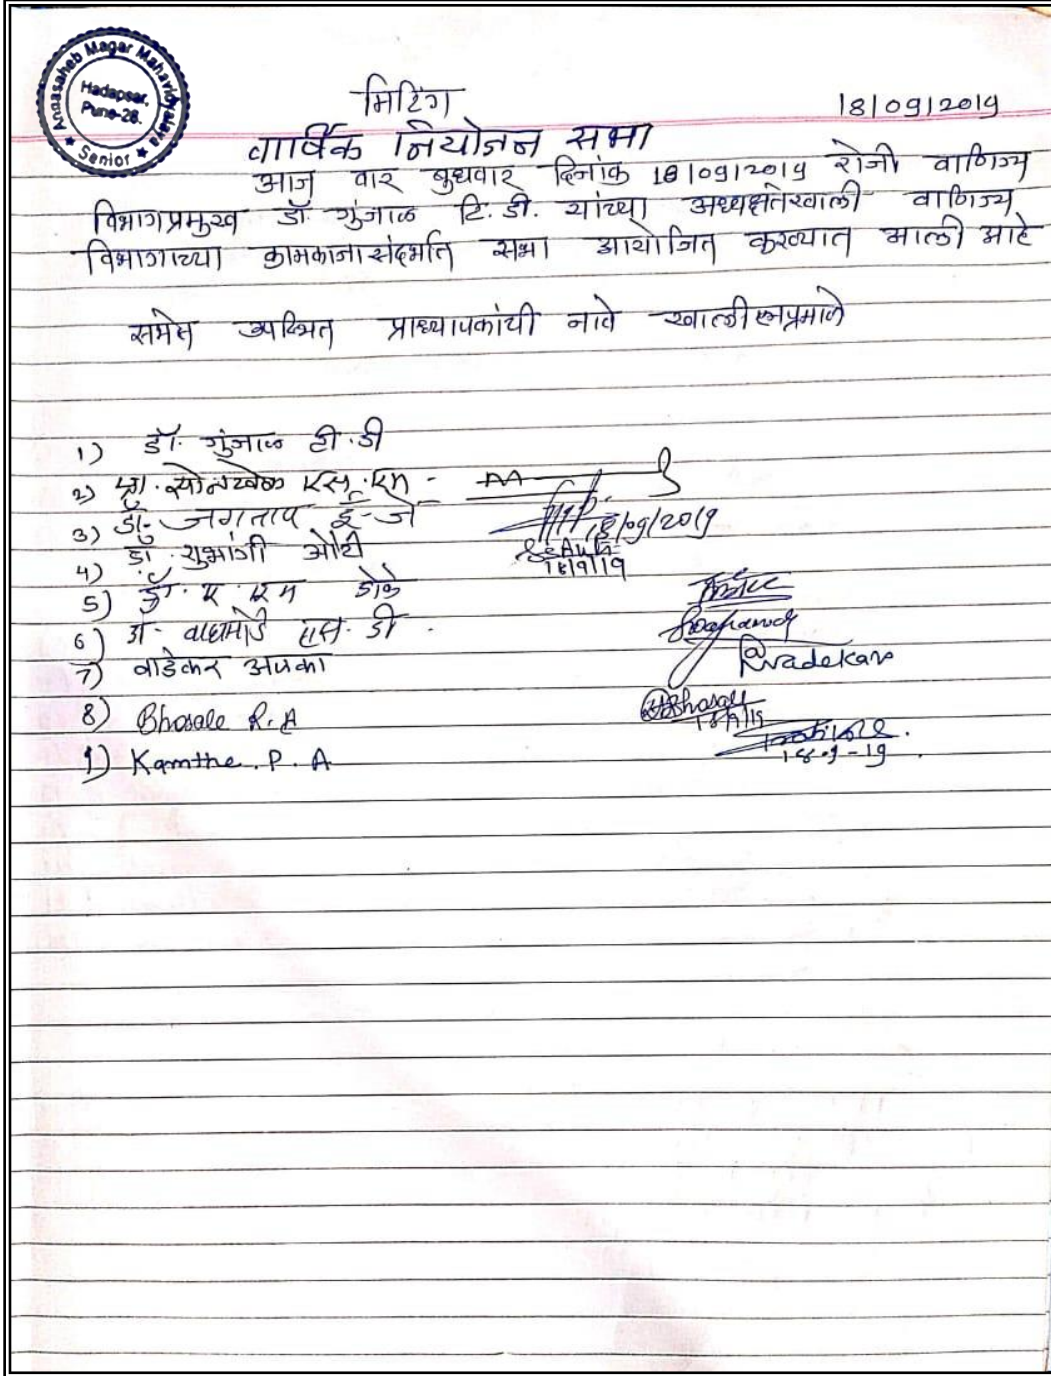 Annasaheb Magar Mahavidyalaya
Hadapsar,
Pune-28.
★ Senior ★
मिटिंग
18/09/2019
वार्षिक नियोजन सभा
आज वार बुधवार दिनांक 18/09/2019 रोजी वाणिज्य
विभागप्रमुख डॉ. गुंजाळ टि. डी. यांच्या अध्यक्षतेखाली वाणिज्य
विभागाच्या कामकाजासंदर्भात सभा आयोजित करण्यात आली आहे
सभेस उपस्थित प्राध्यापकांची नावे खालीलप्रमाणे
1) डॉ. गुंजाळ टी. डी
2) प्रा. एस. एम -
3) डॉ. जगताप ई. जे
18/09/2019
4) डॉ. शुभांगी औटी
18/9/19
5) डॉ. ए. एम डोके
6) डॉ. वाघमोडे एस. डी.
7) वाडेकर
Rwadekar
8) Bhosale R. A
Bhosale
18/9/19
9) Kamthe. P. A
18-9-19